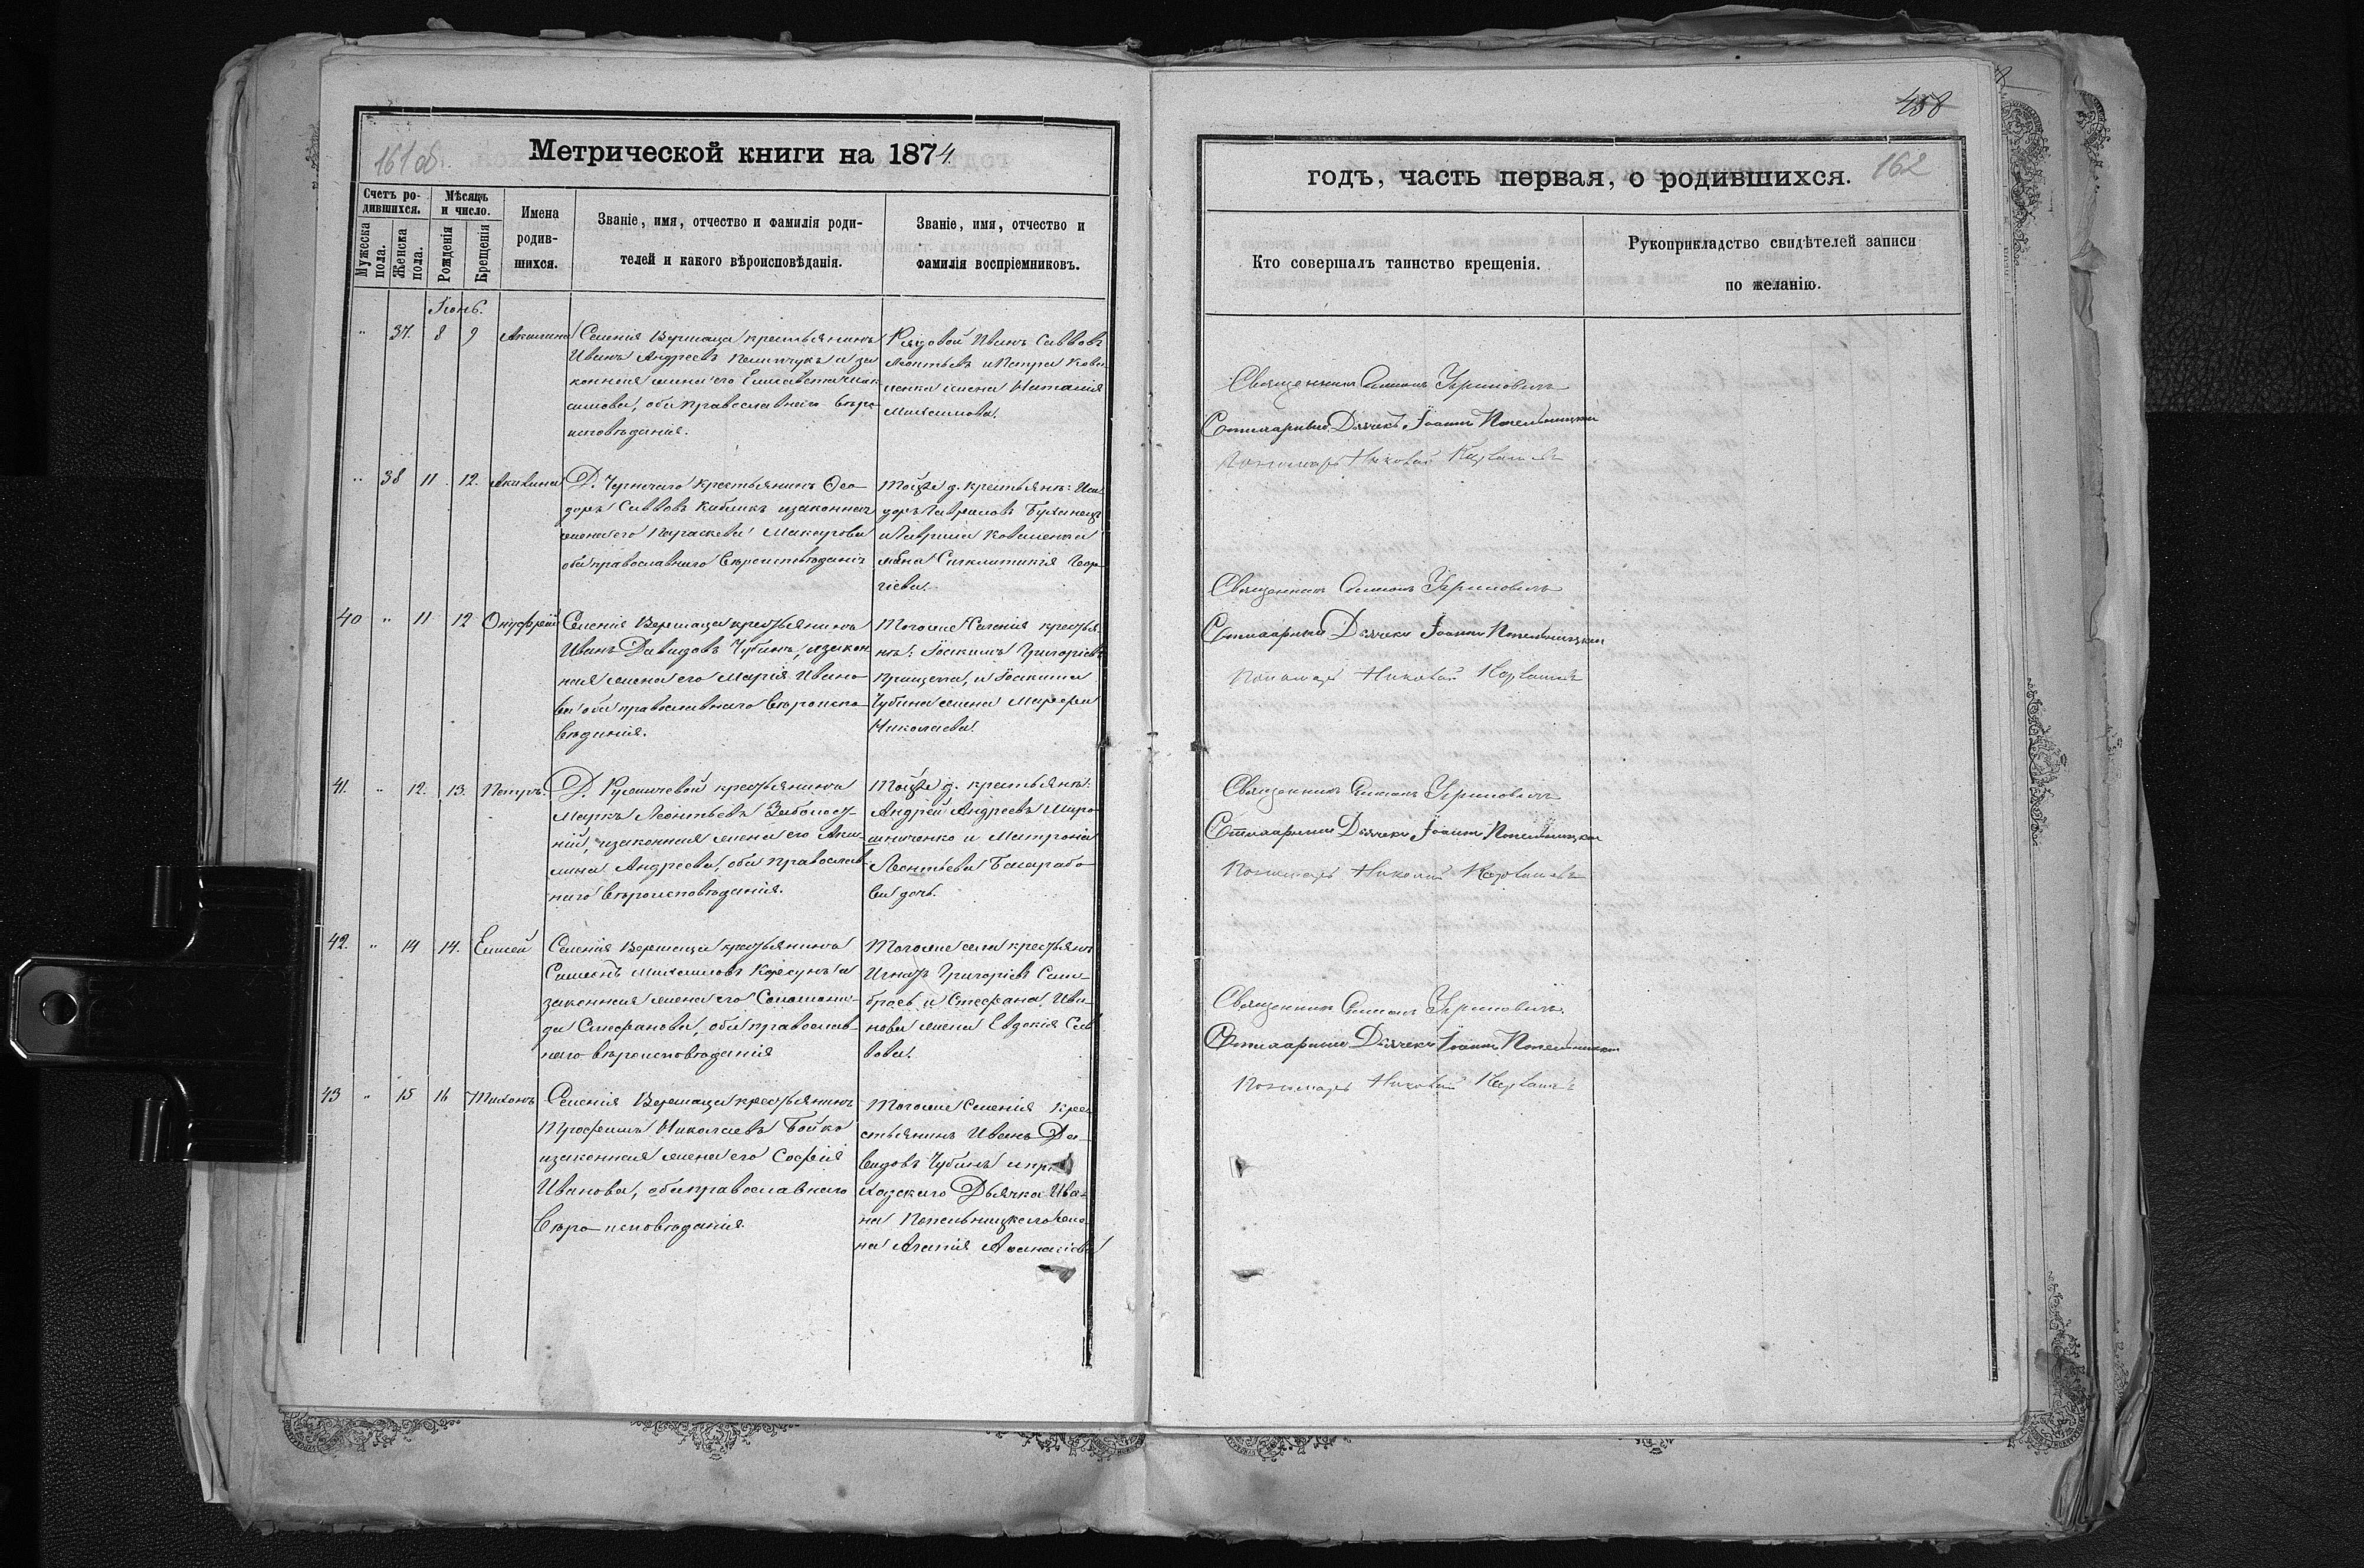 161об.
Метрической книги на 1874
Счетъ ро-
дившихся.
Мѣсяцъ
и число.
Мужеска
пола.
Женска
пола.
Рожденія
Крещенія
Имена
родив-
шихся.
Званіе, имя, отчество и фамилія роди-
телей и какого вѣроисповѣданія.
Званіе, имя, отчество и
фамилія воспріемниковъ.
Іюнь.
" 37. 8 9 Акилина
Селенія Вермаца крестьянинъ
Иванъ Андреевъ и за
конная жена его Елисавета Мак
симова, оба православнаго вѣро
исповѣданія.
Рядовой Иванъ Савковъ
Леонтьевъ и Петра Кова
ленка жена Наталія
Михаилова.
" 38 11 12. Акилина
Д. крестьянинъ Ѳео-
доръ Савковъ и законная
жена его Параскева Макарова
оба православнаго вѣроисповѣданія
Той же д. крестьяне: Иси
доръ Гавриловъ
и Гавриила Коваленка
жена Синклитикія Геор-
гіева.
40 " 11 12 Онуфрій
Селенія Вермаца крестьянинъ
Иванъ Давидовъ Чубинъ, и закон
ная жена его Марія Ивано
ва оба православнаго вѣроиспо
вѣданія.
Того же Селенія крестья
не: Іоакимъ Григоріевъ
и Іоакима
Чубина жена Марфа
Николаева.
41. " 12. 13. Петръ.
Д. крестьянинъ
Маркъ Леонтьевъ Заболот-
ній, и законная жена его Аки-
лина Андреева, оба православ-
наго вѣроисповѣданія.
Той же д. крестьяне:
Андрей Андреевъ Миро-
шниченко и Матрона
Леонтьева
ва дочь.
42. " 14 14. Елисей
Селенія Вермаца крестьянинъ
Симеонъ Михаиловъ Корсунъ и
законная жена его Соломони-
да Стефанова, оба православ-
наго вѣроисповѣданія
Того же села крестьяне
Игнатъ Григоріевъ Сам-
брасъ и Стефана Ива-
нова жена Евдокія Сав
вова.
43 " 15 16 Тихонъ
Селенія Вермаца крестьянинъ
Трофимъ Николаевъ Бойко
и законная жена его Софія
Иванова, оба православнаго
вѣро-исповѣданія.
Того же Селенія кре-
стьянинъ Иванъ Да-
видовъ Чубинъ и при
ходскаго Дьячка Ива-
на Попельницкаго же
на Агапія Аѳанасіева
458
162
годъ, часть первая, о родившихся.
Кто совершалъ таинство крещенія.
Рукоприкладство свидѣтелей записи
по желанію.
Священникъ Симеонъ
Дьячекъ Іоаннъ Попельницкій
Пономарь Николай
Священникъ Симеонъ
Дьячекъ Іоаннъ Попельницкій
Пономарь Николай
Священникъ Симеонъ
Дьячекъ Іоаннъ Попельницкій
Пономарь Николай
Священникъ Симеонъ
Дьячекъ Іоаннъ Попельницкій
Пономарь Николай